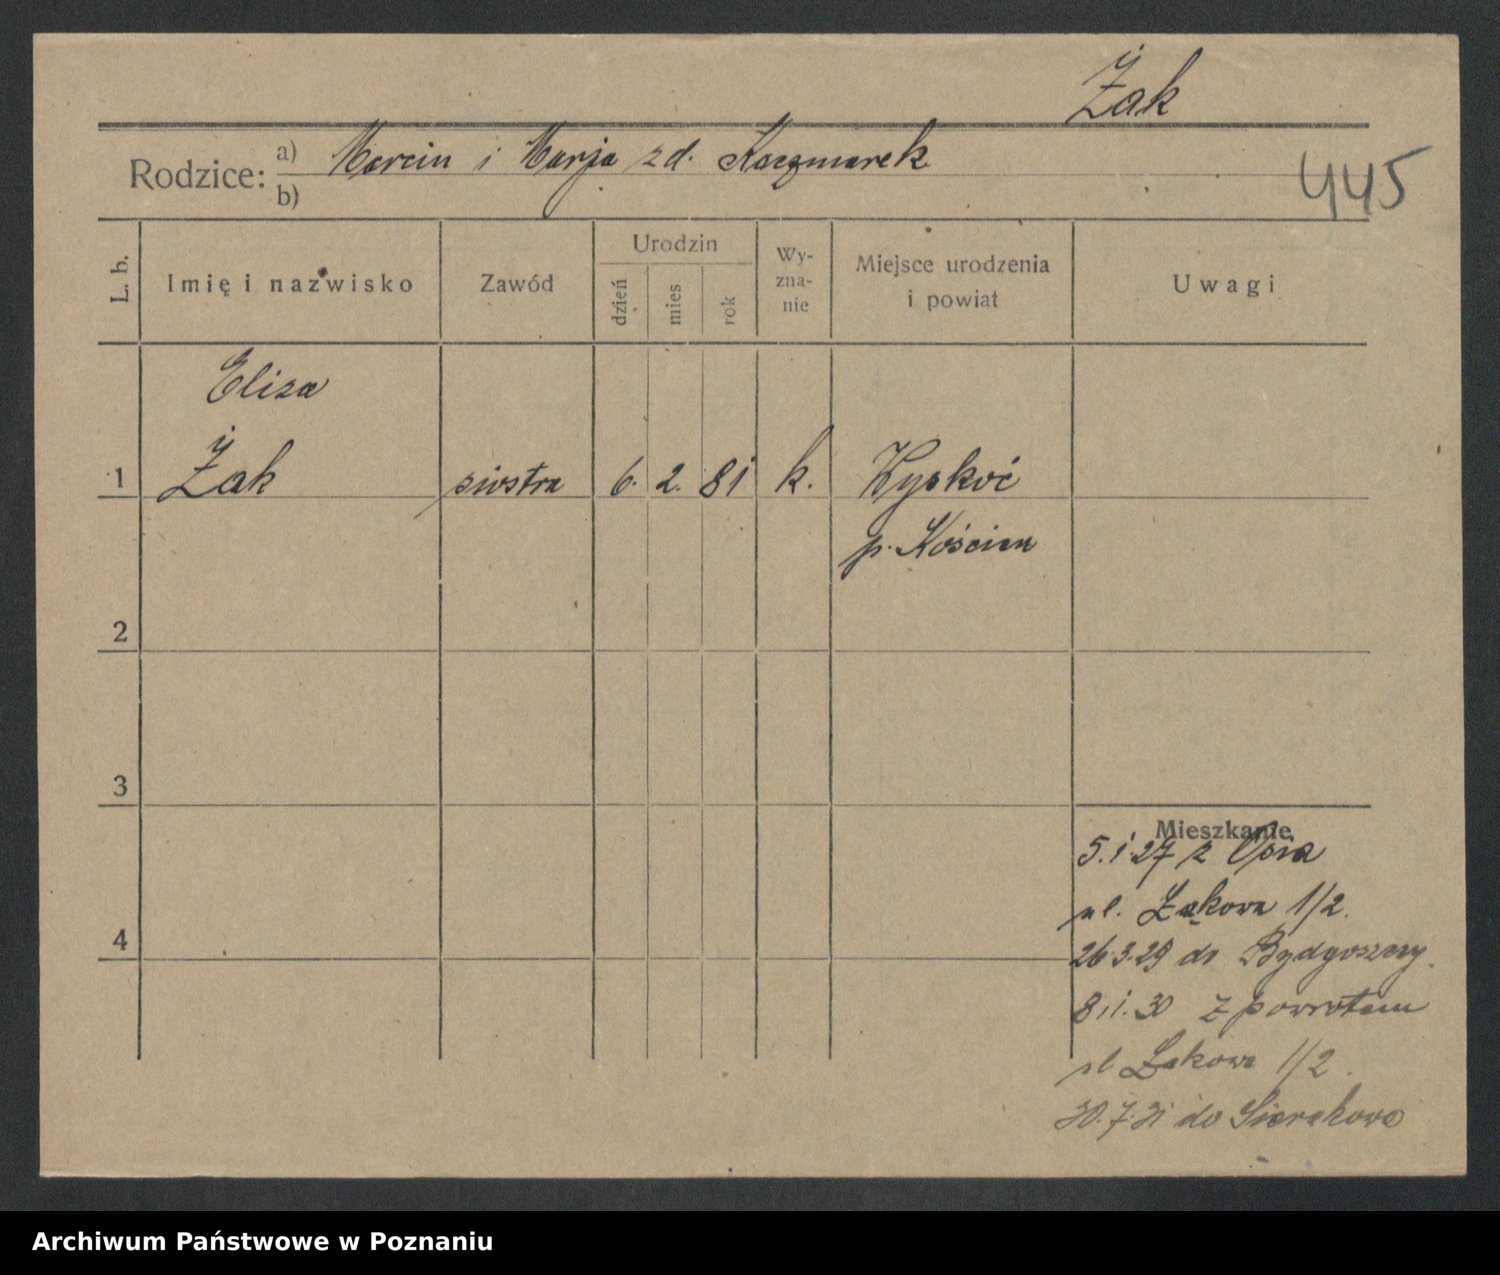 Żak
Rodzice: a) Marcin i Marja zd. Kaczmarek
b)
445
L. b.
Imię i nazwisko
Zawód
Urodzin
dzień
mies
rok
Wy-
zna-
nie
Miejsce urodzenia
i powiat
Uwagi
Eliza
1 Żak siostra 6. 2. 81 k. Wyskoć
p. Kościan
2
3
Mieszkanie
5.1.27 z
ul. Łąkowa 1/2.
4
26.3.29 do Bydgoszczy.
8.1.30 z powrotem
ul Łąkowa 1/2.
30.7.31 do Sierakowa
Archiwum Państwowe w Poznaniu